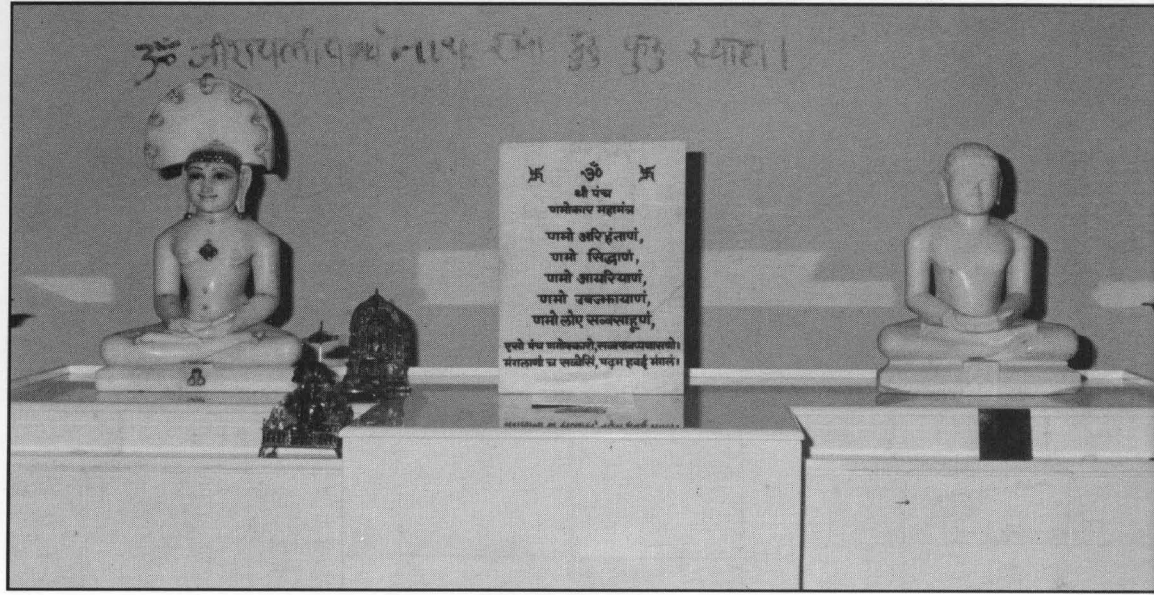 ॐ रक्षा कुरु कुरु स्वाहा।
ॐ
श्री पंच
णमोकार महामंत्र
णमो अरिहंताणं,
णमो सिद्धाणं,
णमो आयरियाणं,
णमो उवज्झायाणं,
णमो लोए सव्वसाहूणं,
एसो पंच णमोक्कारो, सव्वपावप्पणासणो।
मंगलाणं च सव्वेसिं, पढ़म हवई मंगलं।